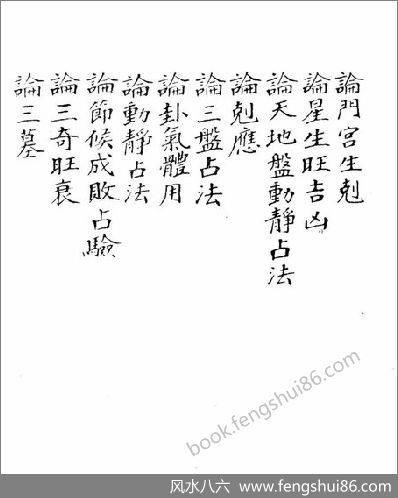 論門宮生剋
論星生旺吉凶
論天地盤動靜占法
論剋應
論三盤占法
論卦氣體用
論動靜占法
論節候成敗占驗
論三奇旺衰
論三墓
book.fengshui86.com
风水八六 | www.fengshui86.com